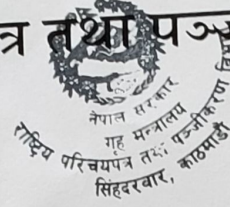 त्र तथा पञ्
नेपाल सरकार
गृह मन्त्रालय
राष्ट्रिय परिचयपत्र तथा पञ्जीकरण विभाग
सिंहदरवार, काठमाडौं